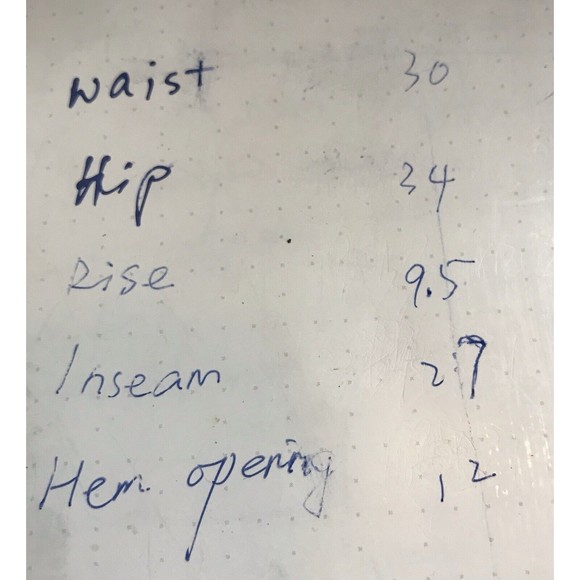 waist 30
Hip 34
Rise 9.5
Inseam 27
Hem opening 12